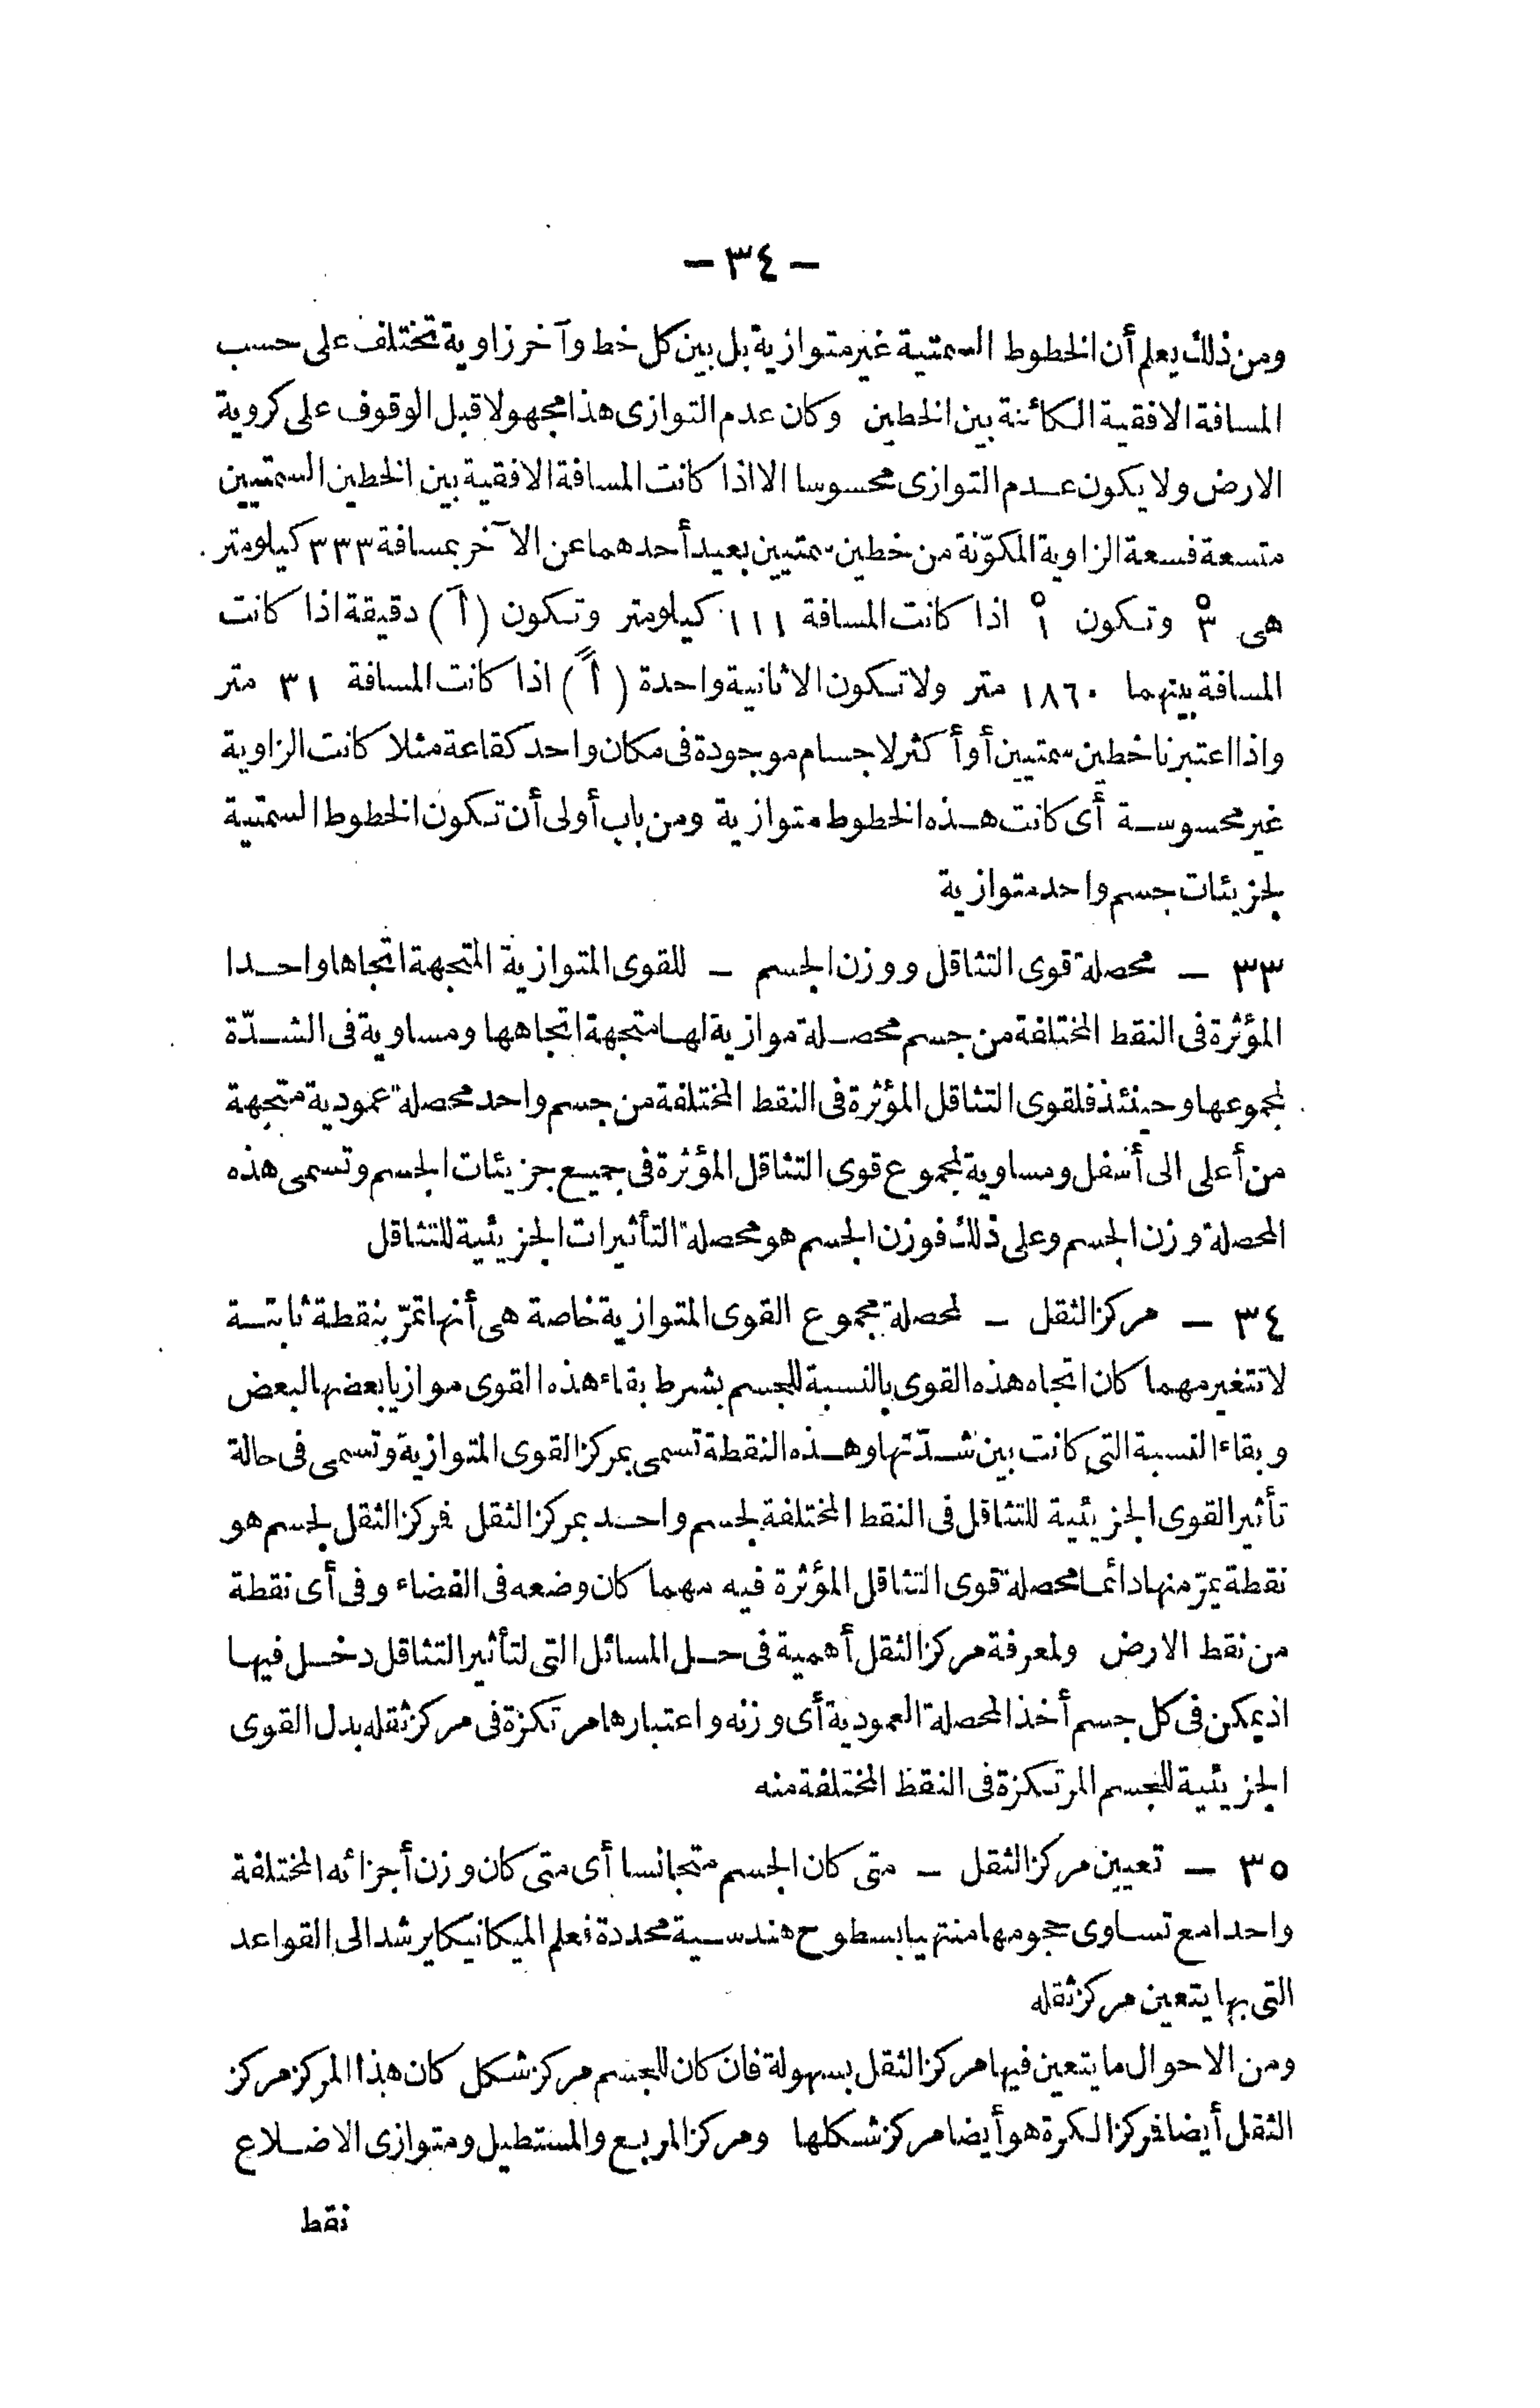 - ٣٤ -
ومن ذلك يعلم أن الخطوط السمتية غير متوازية بل بين كل خط وآخر زاوية تختلف على حسب
المسافة الافقية الكائنة بين الخطين وكان عدم التوازى هذا مجهولا قبل الوقوف على كروية
الارض ولا يكون عدم التوازى محسوسا الا اذا كانت المسافة الافقية بين الخطين السمتيين
متسعة فسعة الزاوية المكوّنة من خطين سمتيين بعيد أحدهما عن الآخر بمسافة ٣٣٣ كيلومتر
هى ٣ْ وتكون ١ْ اذا كانت المسافة ١١١ كيلومتر وتكون (١َ) دقيقة اذا كانت
المسافة بينهما ١٨٦٠ متر ولا تكون الا ثانية واحدة (١ً) اذا كانت المسافة ٣١ متر
واذا اعتبرنا خطين سمتيين أو أكثر لاجسام موجودة فى مكان واحد كقاعة مثلا كانت الزاوية
غير محسوسة أى كانت هذه الخطوط متوازية ومن باب أولى أن تكون الخطوط السمتية
لجزيئات جسم واحد متوازية
٣٣ - محصلة قوى التثاقل ووزن الجسم - للقوى المتوازية المتجهة اتجاها واحدا
المؤثرة فى النقط المختلفة من جسم محصلة موازية لها متجهة اتجاهها ومساوية فى الشدّة
لمجموعها وحينئذ فلقوى التثاقل المؤثرة فى النقط المختلفة من جسم واحد محصلة عمودية متجهة
من أعلى الى أسفل ومساوية لمجموع قوى التثاقل المؤثرة فى جميع جزيئات الجسم وتسمى هذه
المحصلة وزن الجسم وعلى ذلك فوزن الجسم هو محصلة التأثيرات الجزيئية للتثاقل
٣٤ - مركز الثقل - لمحصلة مجموع القوى المتوازية خاصة هى أنها تمرّ بنقطة ثابتة
لا تتغير مهما كان اتجاه هذه القوى بالنسبة للجسم بشرط بقاء هذه القوى موازيا بعضها لبعض
وبقاء النسبة التى كانت بين شدّتها وهذه النقطة تسمى بمركز القوى المتوازية وتسمى فى حالة
تأثير القوى الجزيئية للتثاقل فى النقط المختلفة لجسم واحد بمركز الثقل فمركز الثقل لجسم هو
نقطة يمرّ منها دائما محصلة قوى التثاقل المؤثرة فيه مهما كان وضعه فى الفضاء وفى أى نقطة
من نقط الارض ولمعرفة مركز الثقل أهمية فى حل المسائل التى لتأثير التثاقل دخل فيها
اذ يمكن فى كل جسم أخذ المحصلة العمودية أى وزنه واعتبارها مرتكزة فى مركز ثقله بدل القوى
الجزيئية للجسم المرتكزة فى النقط المختلفة منه
٣٥ - تعيين مركز الثقل - متى كان الجسم متجانسا أى متى كان وزن أجزائه المختلفة
واحدا مع تساوى حجومها منتهيا بسطوح هندسية محددة فعلم الميكانيكا يرشد الى القواعد
التى بها يتعين مركز ثقله
ومن الاحوال ما يتعين فيها مركز الثقل بسهولة فان كان للجسم مركز شكل كان هذا المركز مركز
الثقل أيضا فمركز الكرة هو أيضا مركز شكلها ومركز المربع والمستطيل ومتوازى الاضلاع
نقط